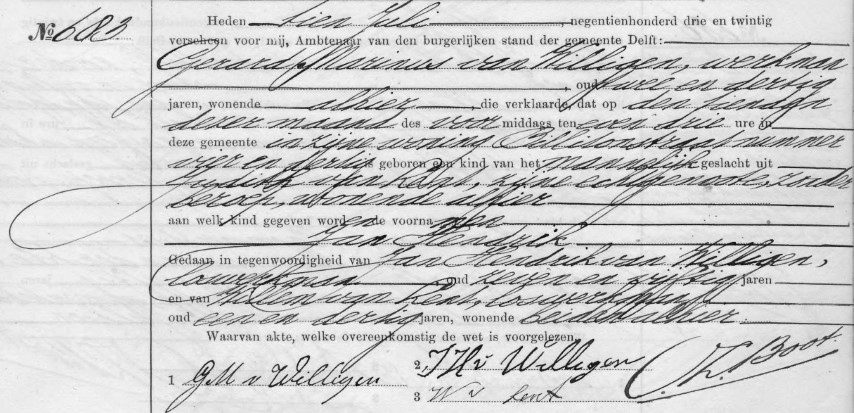 № 683
Heden tien Juli, negentienhonderd drie en twintig
verscheen voor mij, Ambtenaar van den burgerlijken stand der gemeente Delft:
Gerard Marinus van Willigen, werkman
, oud twee en dertig
jaren, wonende alhier, die verklaarde, dat op den tienden
dezer maand des voor middags ten een drie ure in
deze gemeente in zijne woning nummer
vier en dertig is geboren een kind van het mannelijk geslacht uit
van Kent, zijne echtgenoote, zonder
beroep, wonende alhier
aan welk kind gegeven worden de voornamen
Jan Hendrik
Gedaan in tegenwoordigheid van Jan Hendrik van Willigen,
touwerkman, oud zeven en vijftig jaren
en van Willem van Kent, touwerkman,
oud een en dertig jaren, wonende beiden alhier.
Waarvan akte, welke overeenkomstig de wet is voorgelezen
1 G M v Willigen
2 J H v Willigen
3 W v Kent
Boot.